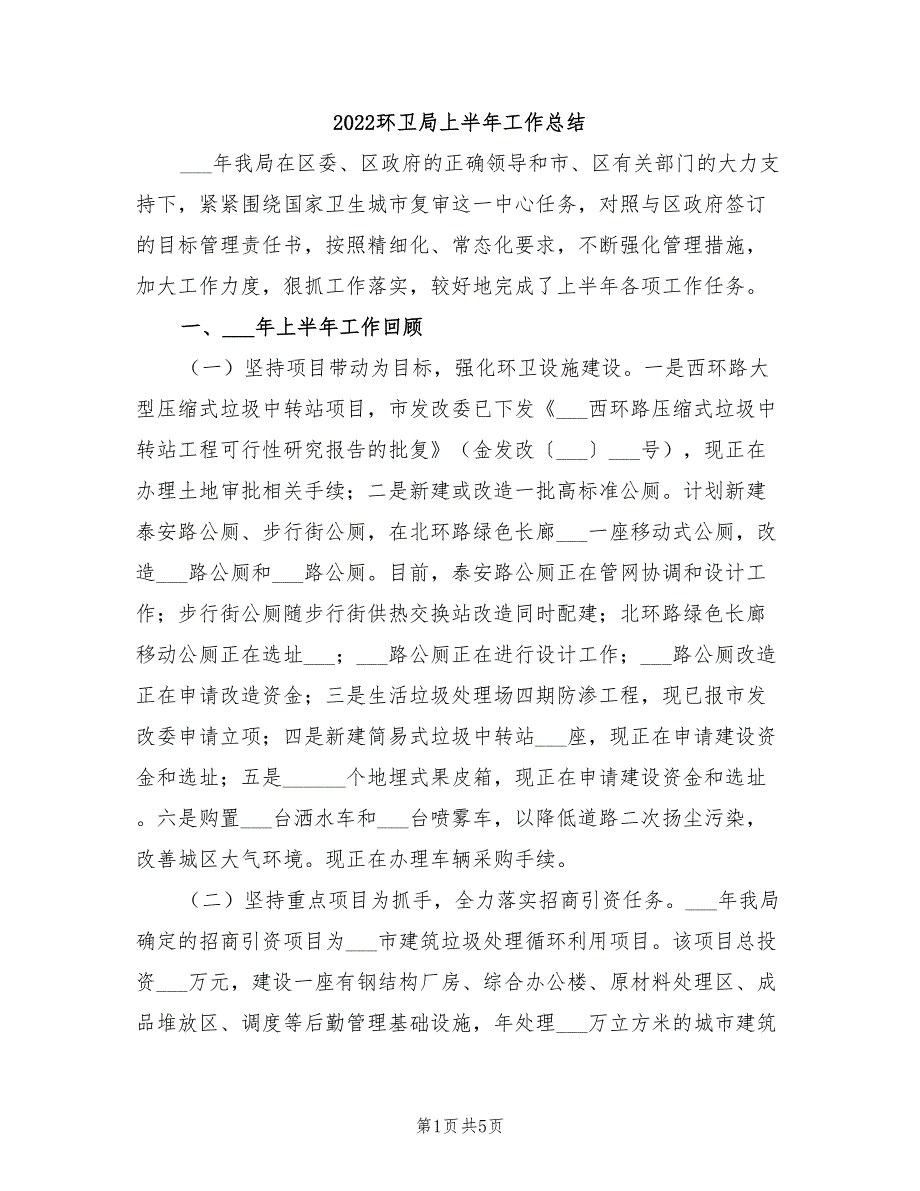 2022环卫局上半年工作总结
___年我局在区委、区政府的正确领导和市、区有关部门的大力支
持下，紧紧围绕国家卫生城市复审这一中心任务，对照与区政府签订
的目标管理责任书，按照精细化、常态化要求，不断强化管理措施，
加大工作力度，狠抓工作落实，较好地完成了上半年各项工作任务。
一、___年上半年工作回顾
（一）坚持项目带动为目标，强化环卫设施建设。一是西环路大
型压缩式垃圾中转站项目，市发改委已下发《___西环路压缩式垃圾中
转站工程可行性研究报告的批复》（金发改〔___〕___号），现正在
办理土地审批相关手续；二是新建或改造一批高标准公厕。计划新建
泰安路公厕、步行街公厕，在北环路绿色长廊___一座移动式公厕，改
造___路公厕和___路公厕。目前，泰安路公厕正在管网协调和设计工
作；步行街公厕随步行街供热交换站改造同时配建；北环路绿色长廊
移动公厕正在选址___；___路公厕正在进行设计工作；___路公厕改造
正在申请改造资金；三是生活垃圾处理场四期防渗工程，现已报市发
改委申请立项；四是新建简易式垃圾中转站___座，现正在申请建设资
金和选址；五是______个地埋式果皮箱，现正在申请建设资金和选址
。六是购置___台洒水车和___台喷雾车，以降低道路二次扬尘污染，
改善城区大气环境。现正在办理车辆采购手续。
（二）坚持重点项目为抓手，全力落实招商引资任务。___年我局
确定的招商引资项目为___市建筑垃圾处理循环利用项目。该项目总投
资___万元，建设一座有钢结构厂房、综合办公楼、原材料处理区、成
品堆放区、调度等后勤管理基础设施，年处理___万立方米的城市建筑
第1页共5页